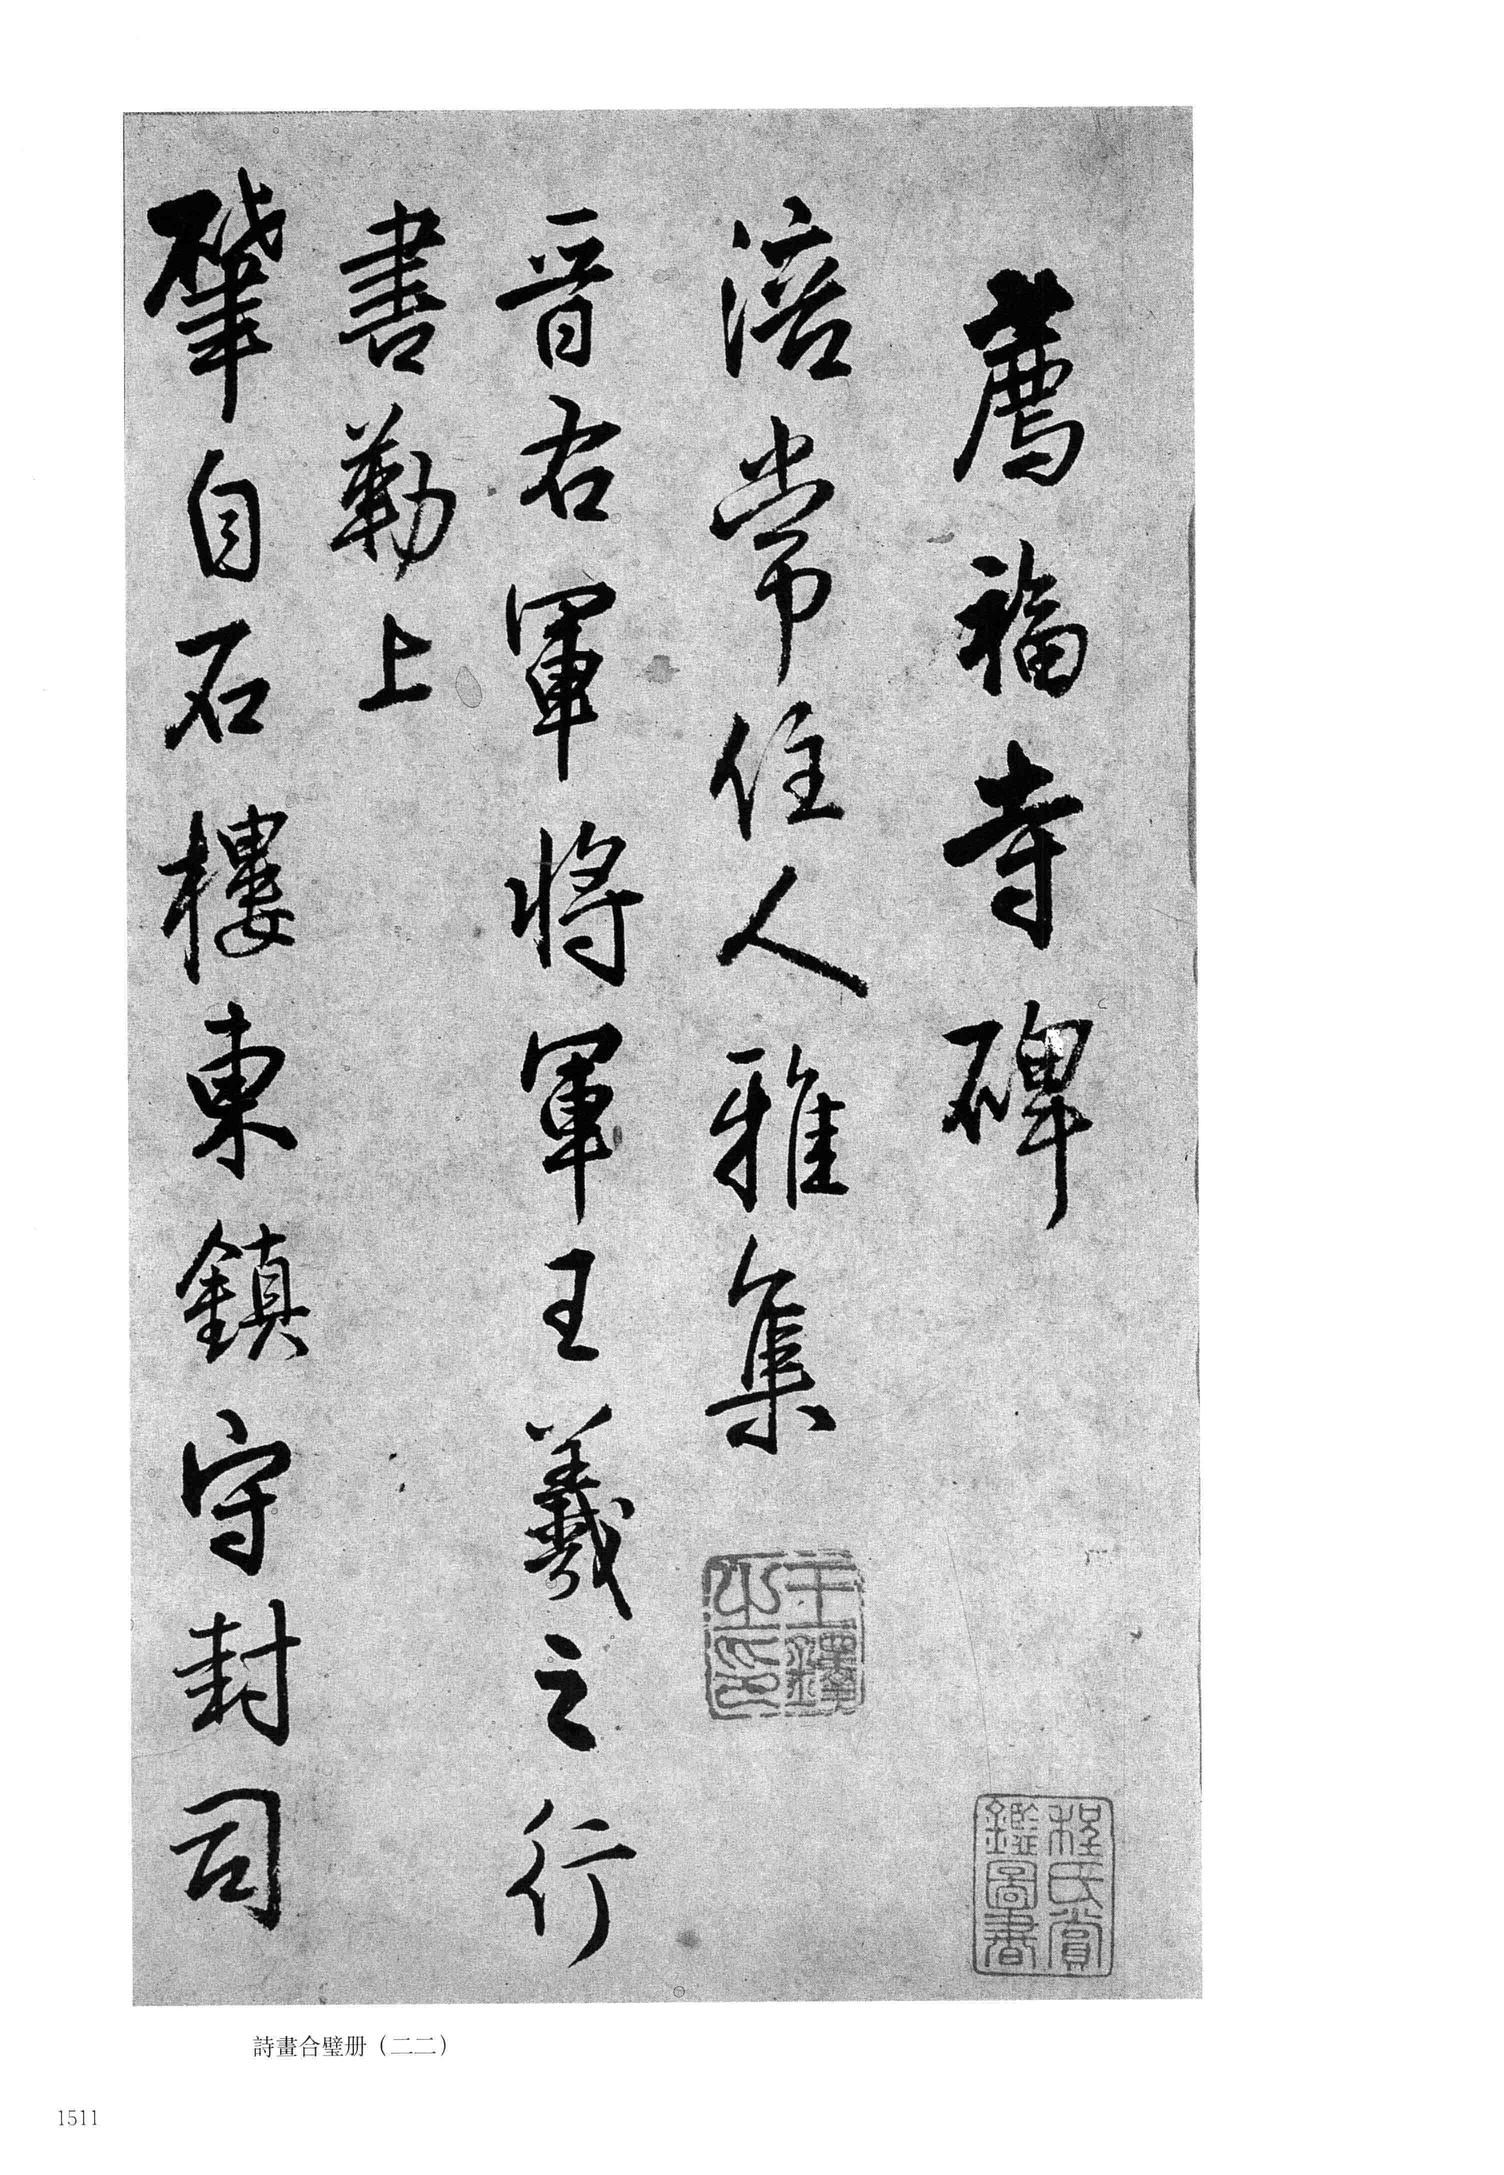 薦福寺碑
涪常住人雅集
晋右軍將軍王羲之行
書勒上
肇自石樓東鎮守封司
王鐸之印
程氏賞鑑圖書
詩畫合璧册（二二）
1511